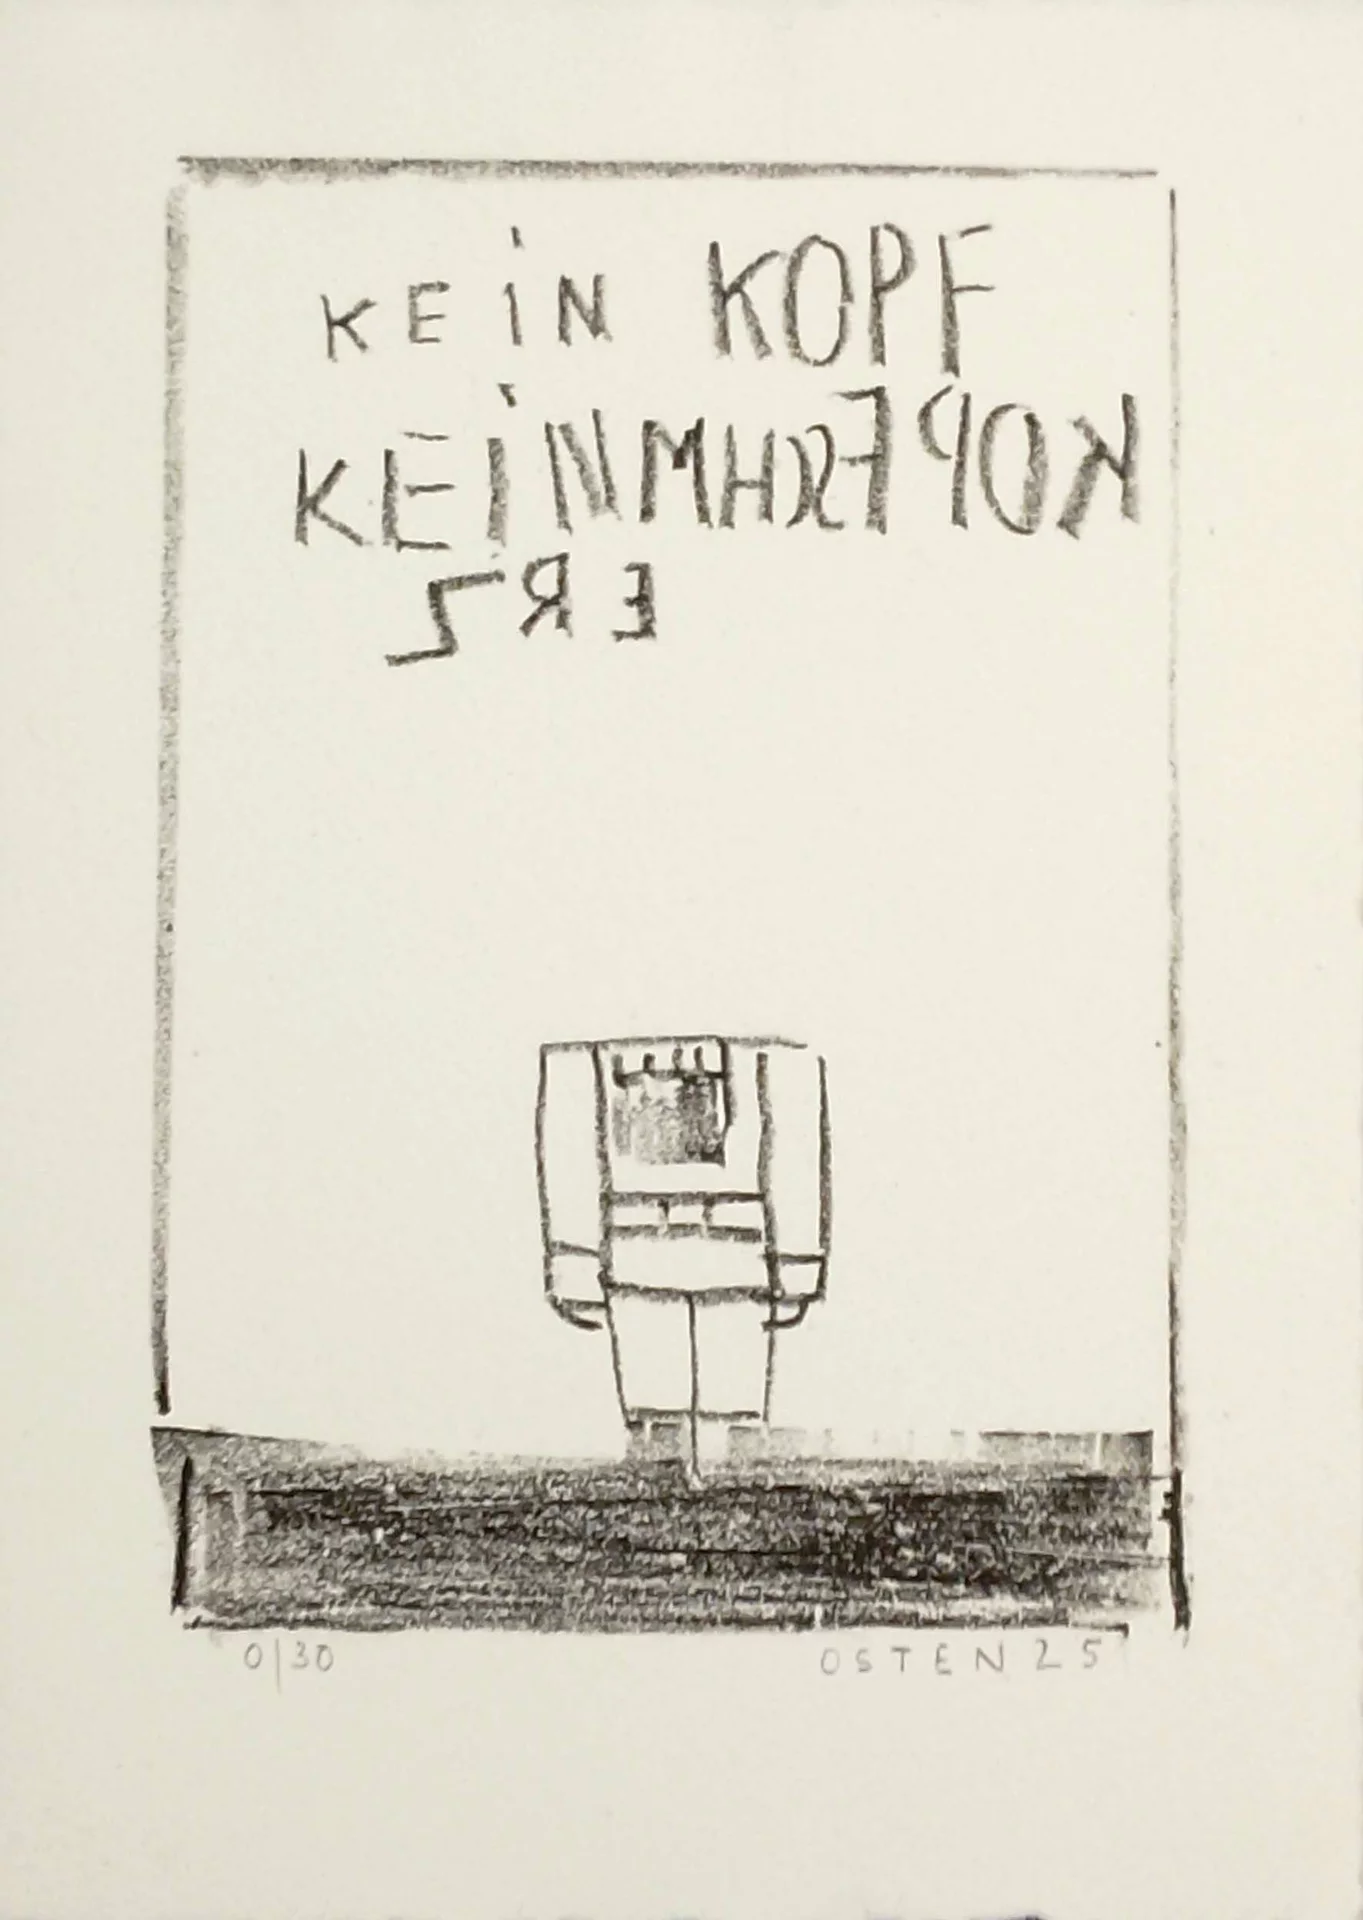 KEiN KOPF
KEiN KOPFSCHM
ERZ
0/30 OSTEN 25